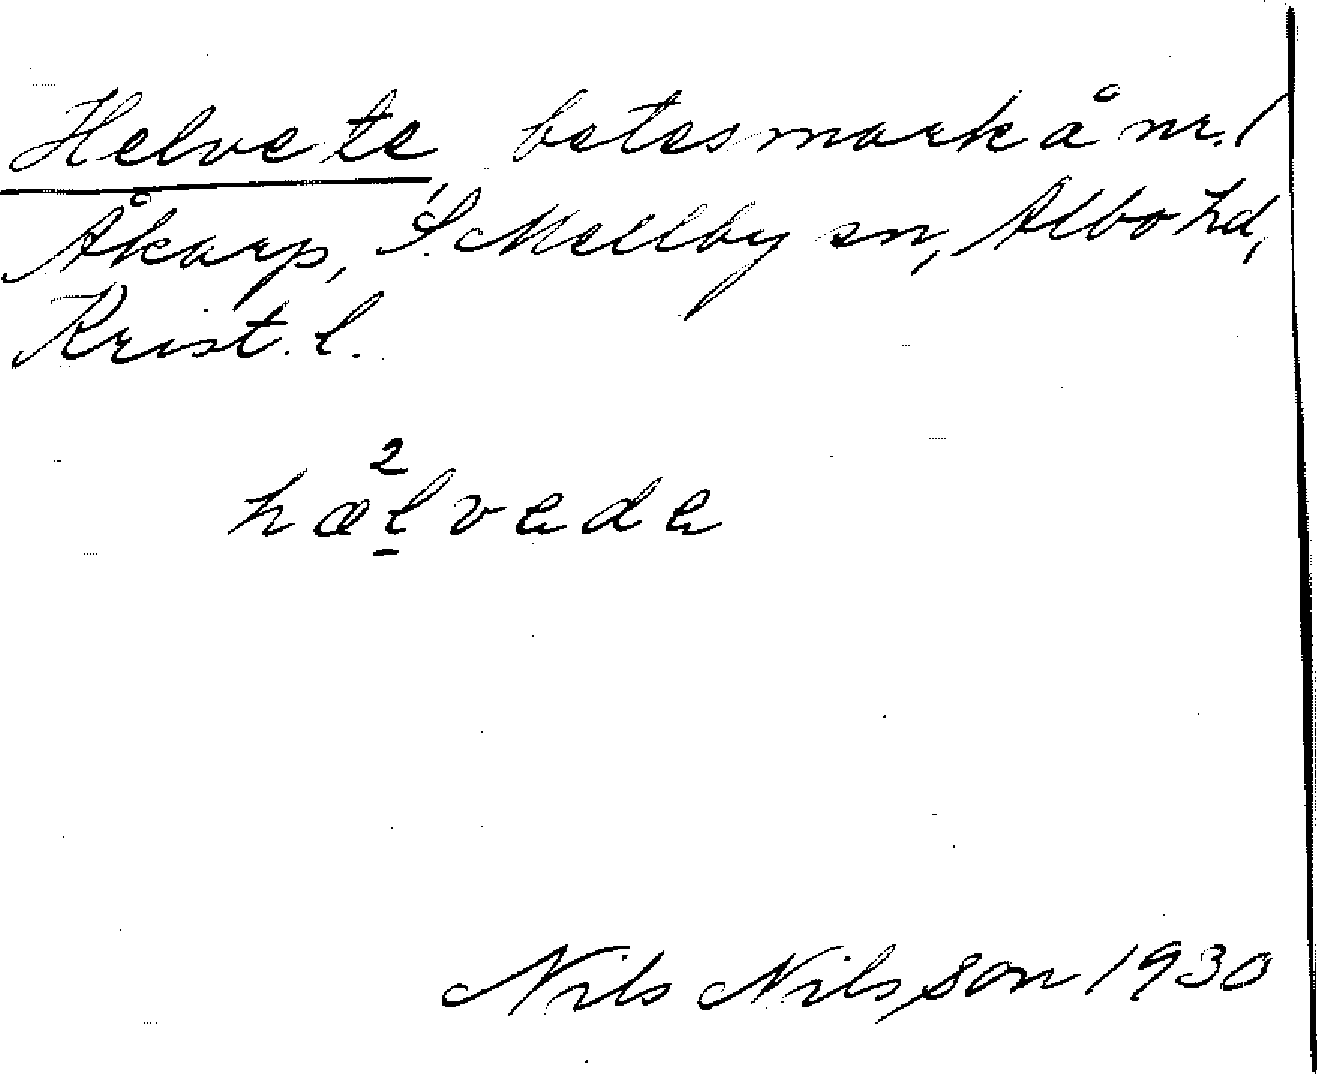 Helvete betesmark å nr. 1
Åkarp, S. Mellby sn, Albo hd,
Krist. l.
2
hælvede
Nils Nilsson 1930